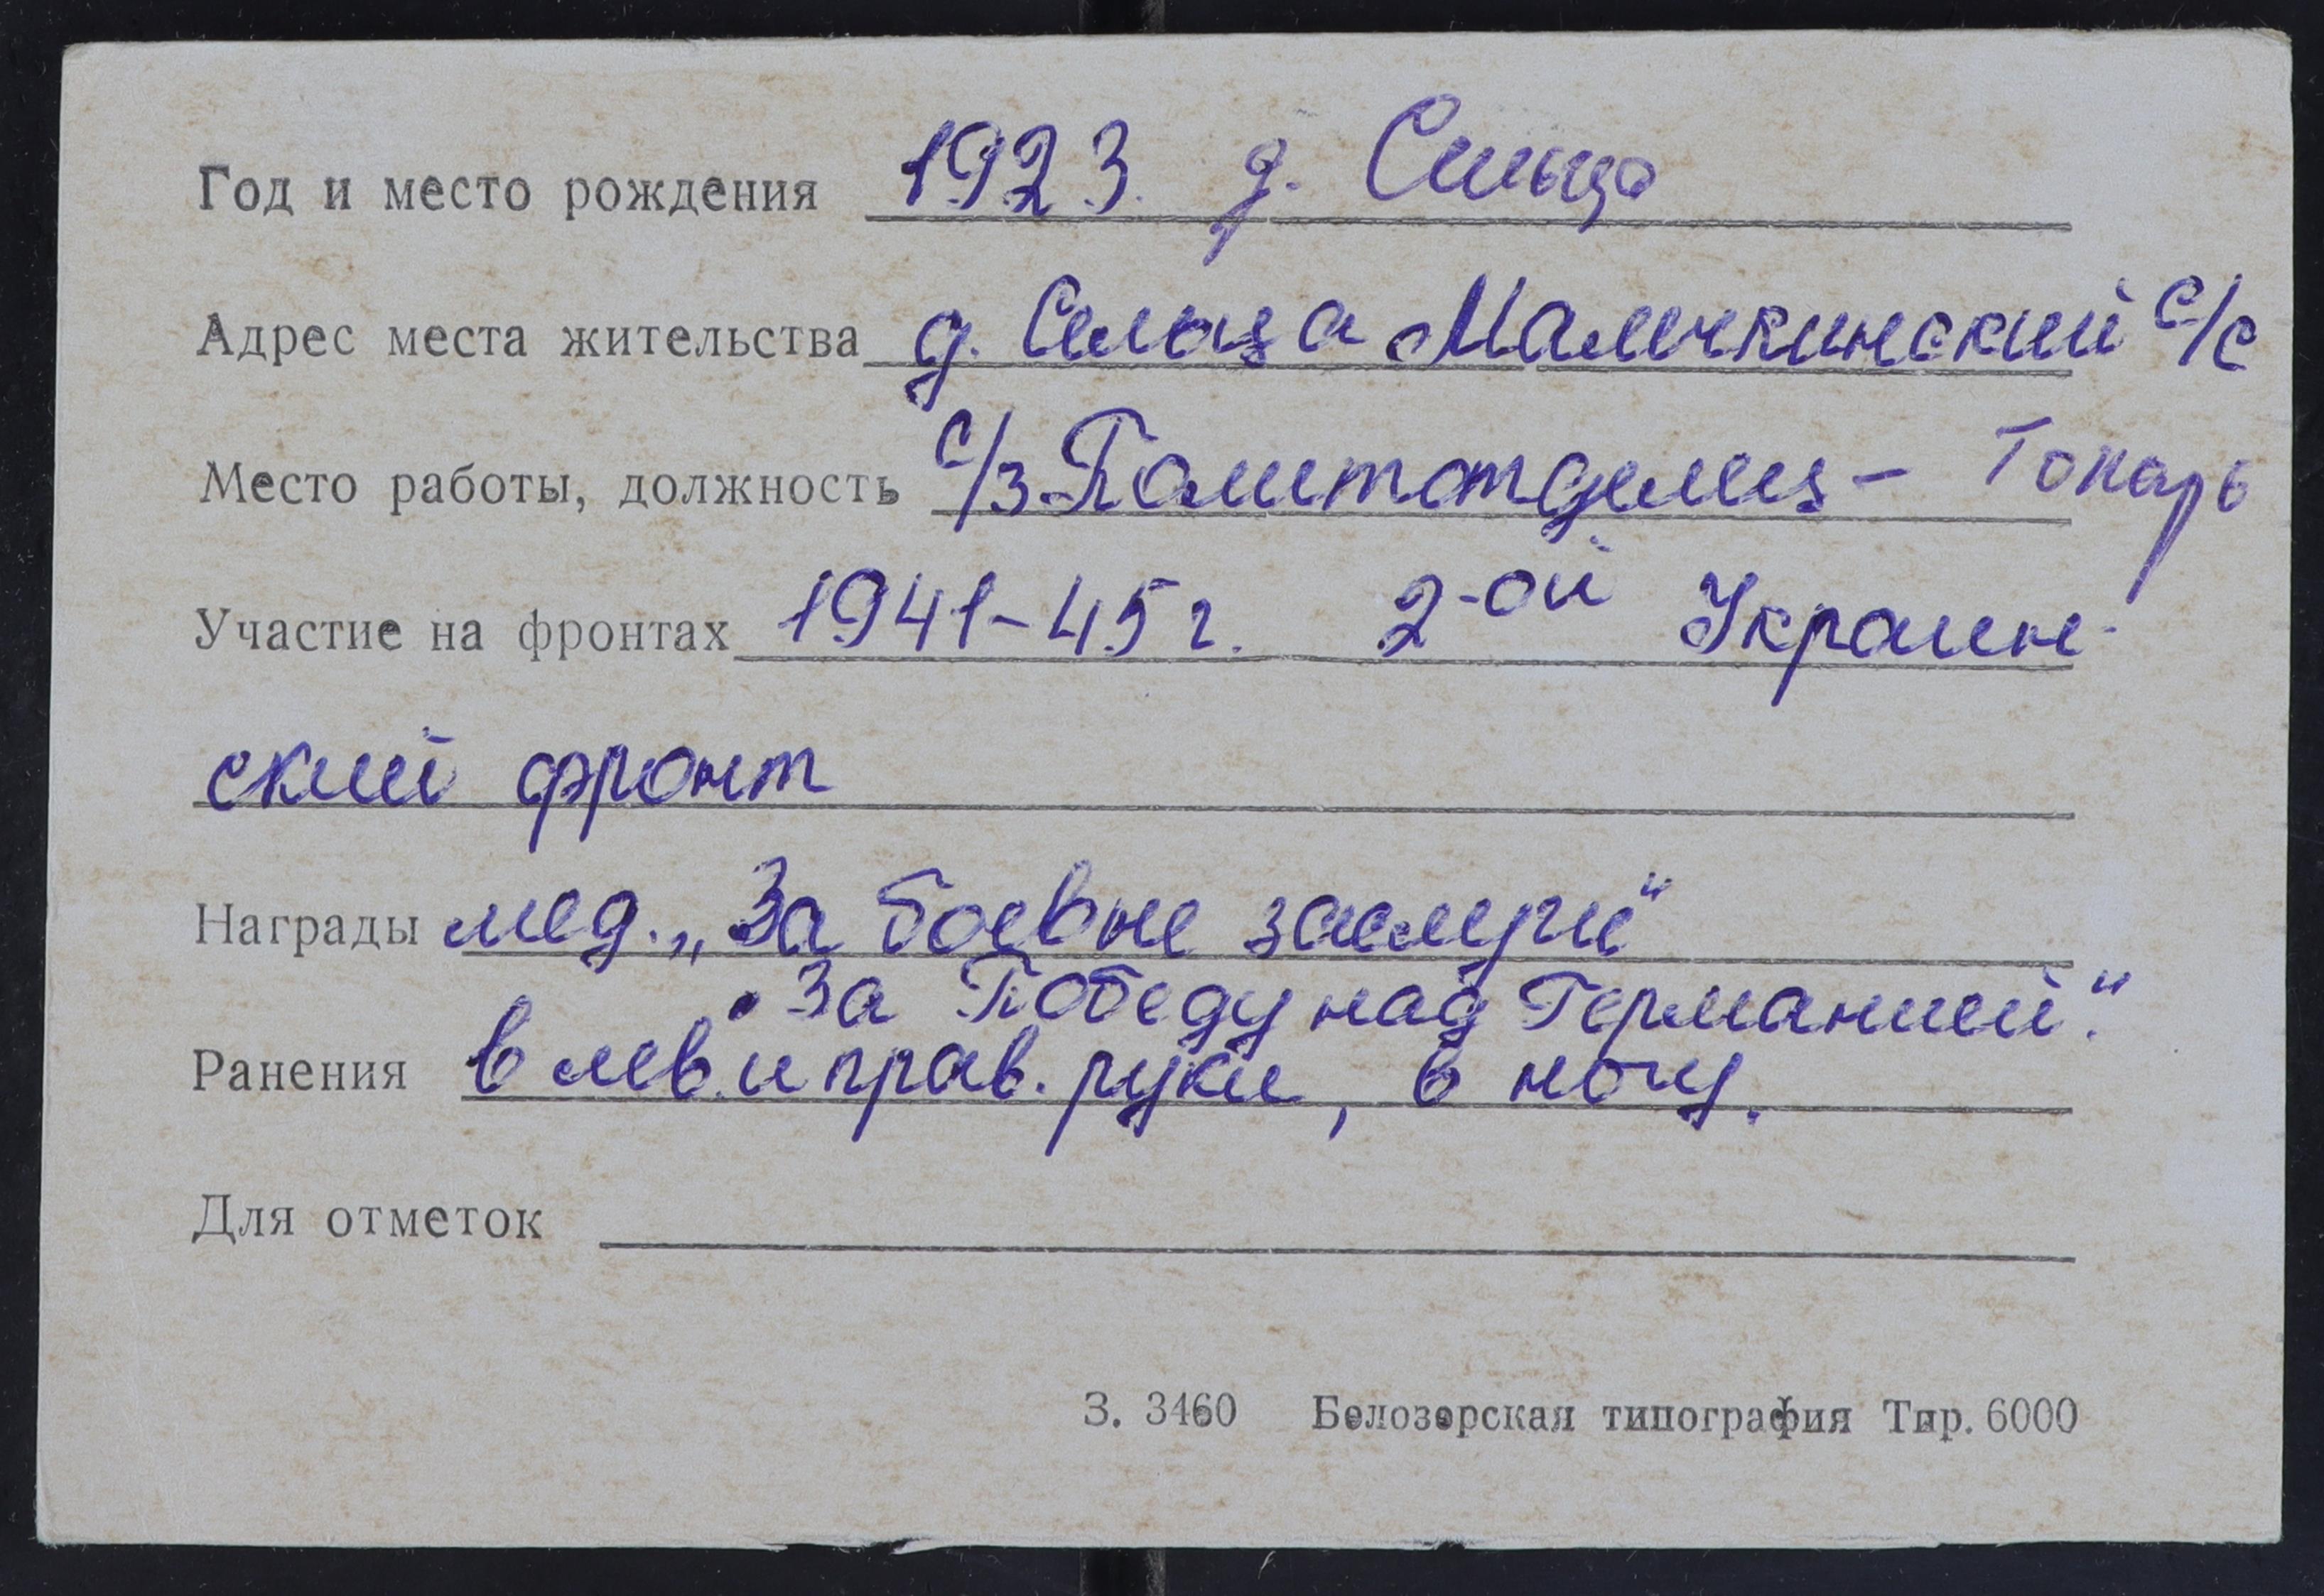 Год и место рождения 1923 д. Сельцо
Адрес места жительства д. Сельца Малечкинский с/с
Место работы, должность с/з Политотделец - Токарь
Участие на фронтах 1941-45 г. 2-ой Украин-
ский фронт
Награды мед. „За боевые заслуги“
„За Победу над Германией“.
Ранения в лев. и прав. руки, в ногу.
Для отметок
З. 3460 Белозерская типография Тир. 6000